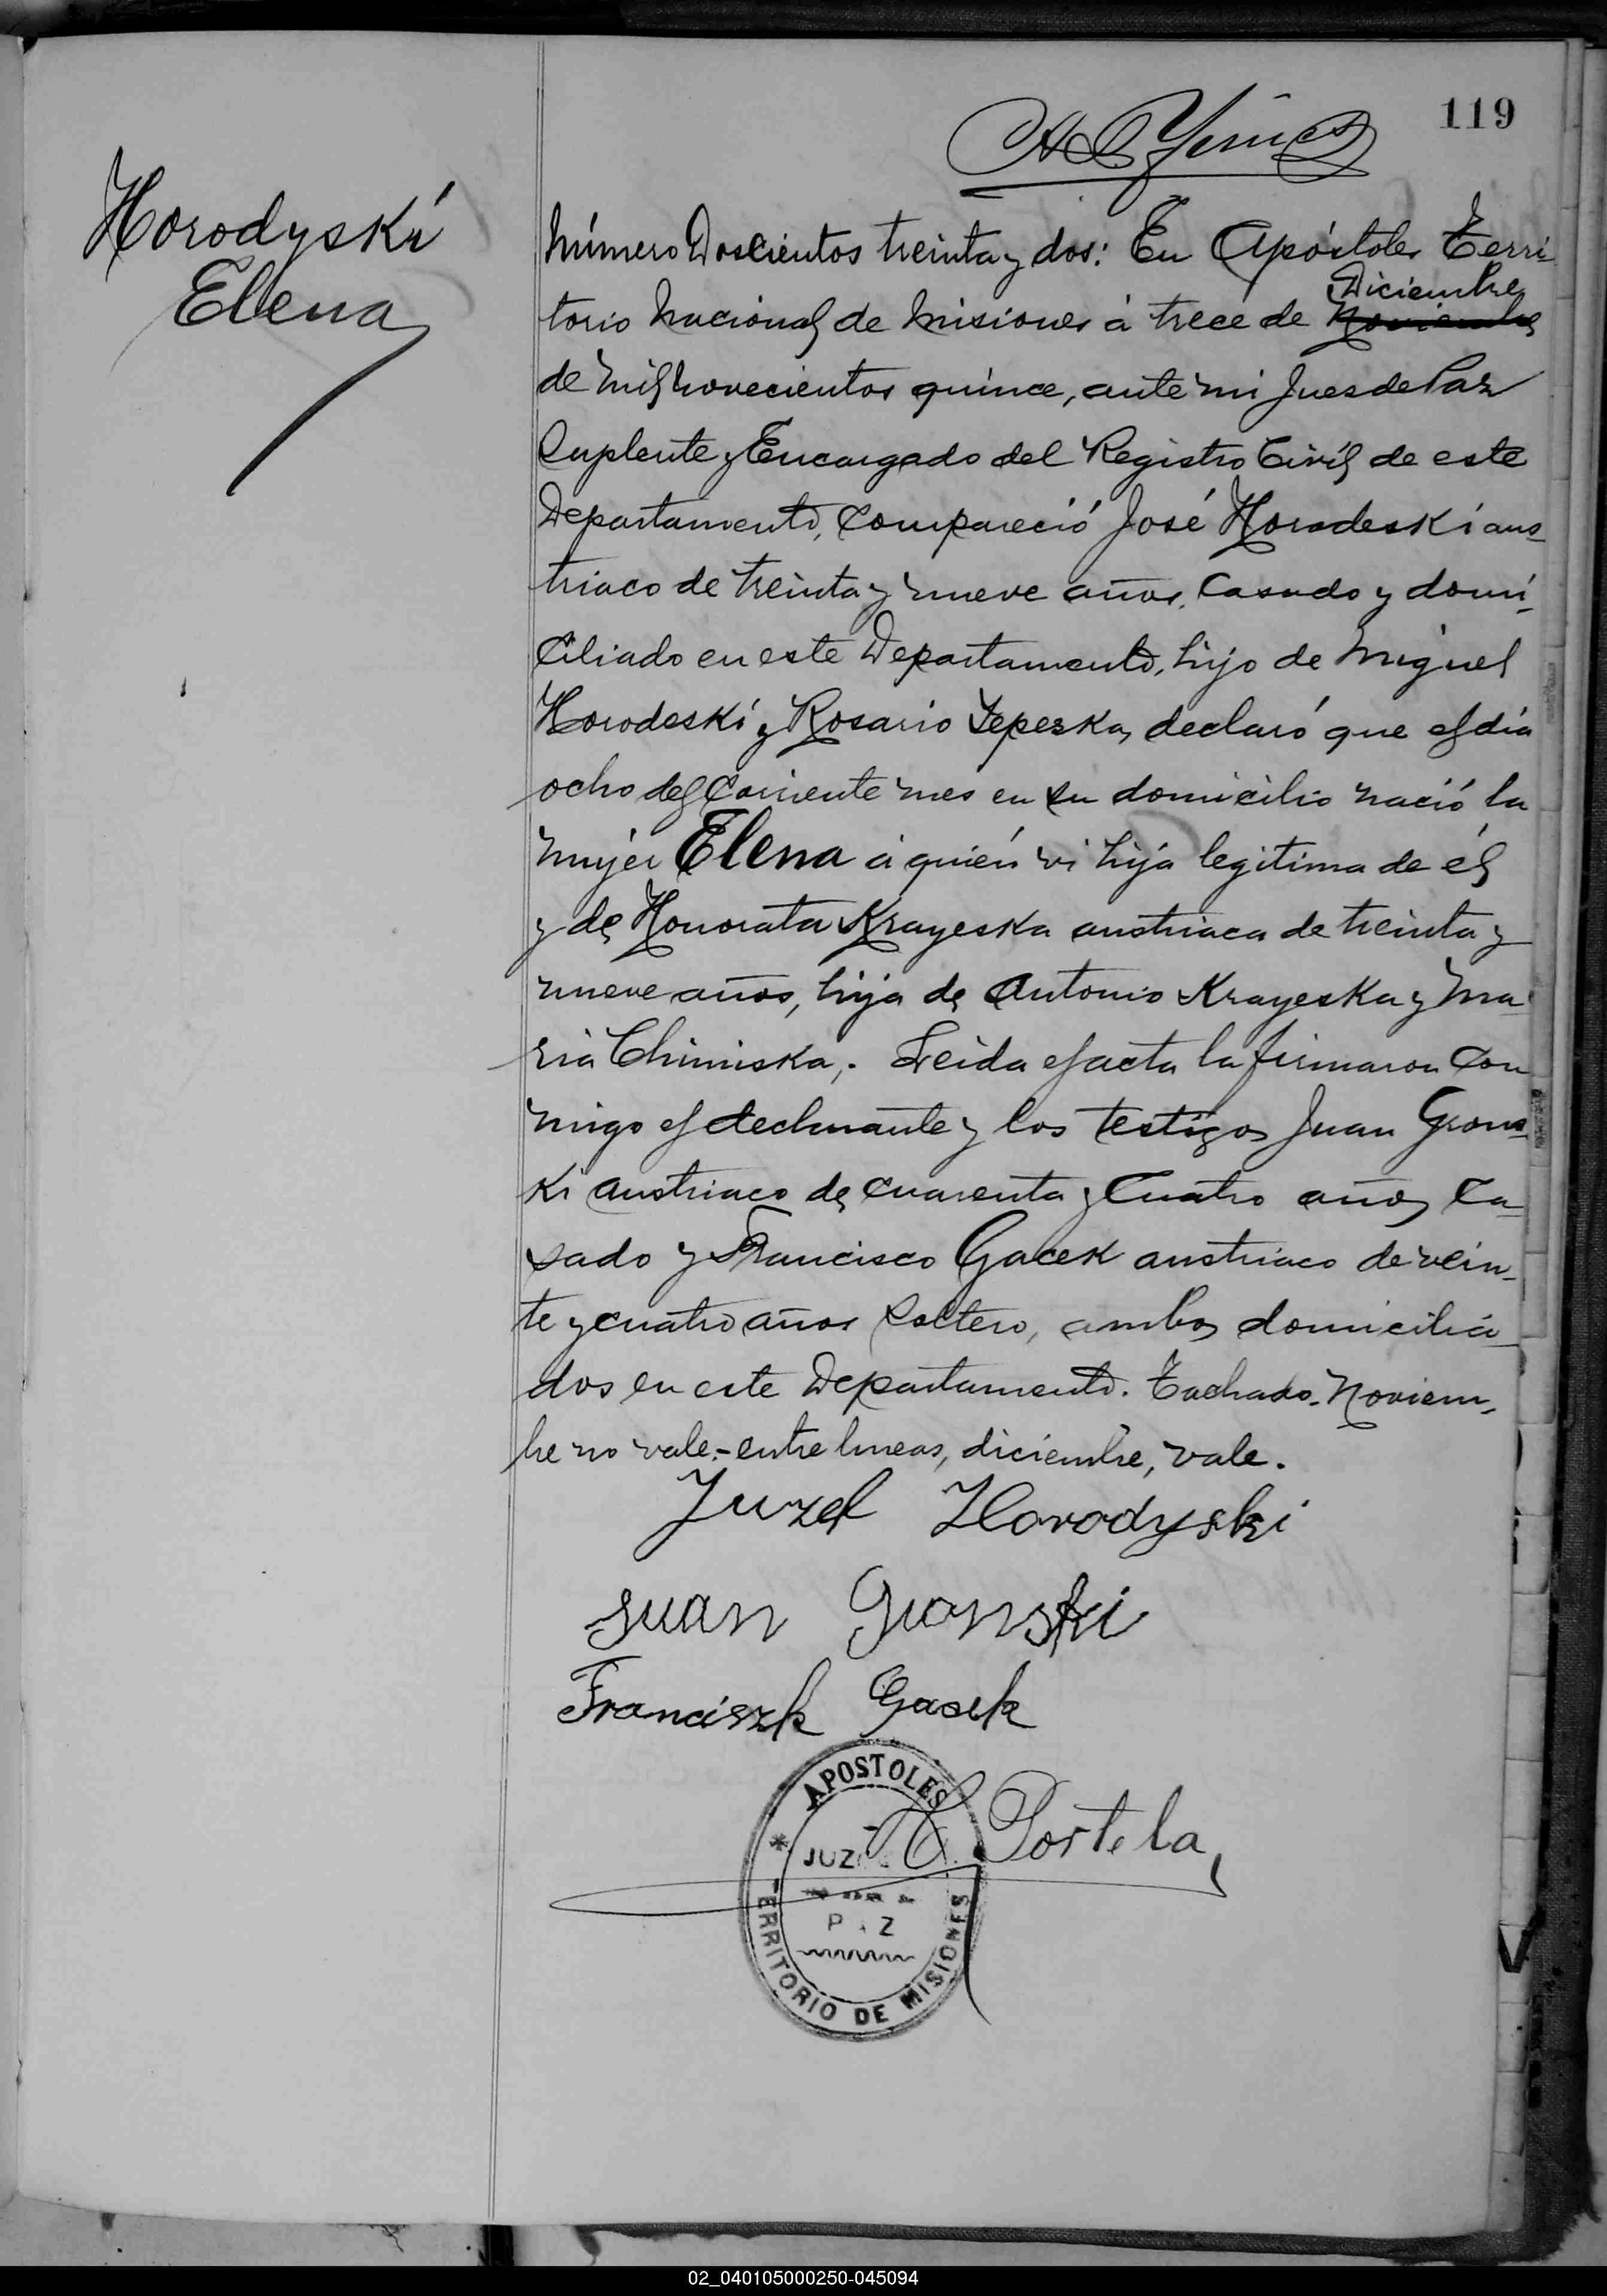 119
Horodyski
Elena
Número Doscientos treinta y dos: En Apóstoles Terri-
torio Nacional de Misiones á trece de Noviembre
Diciembre
de mil novecientos quince, ante mi Jues de Paz
Suplente y Encargado del Registro Civil de este
Departamento, compareció José Horodeski aus-
triaco de treinta y nueve años, casado y domi-
ciliado en este Departamento, hijo de Miguel
Horodeski y Rosario Tepeska, declaró que el día
ocho del corriente mes en su domicilio nació la
mujer Elena á quién vi hija legitima de él
y de Honorata Krayeska austriaca de treinta y
nueve años, hija de Antonio Krayeska y Ma-
ria Chimiska,. Leida el acta la firmaron con
migo el declarante y los testigos Juan Grons-
ki austriaco de cuarenta y cuatro años ca-
sado y Francisco Gacek austriaco de vein-
te y cuatro años soltero, ambos domicilia-
dos en este Departamento. Tachado-Noviem-
bre no vale.-entre lineas, diciembre, vale.
Juzef Horodyski
Juan Gronski
Franciszk Gasek
Portela
APOSTOLES
JUZ
PAZ
TERRITORIO DE MISIONES
02_040105000250-045094